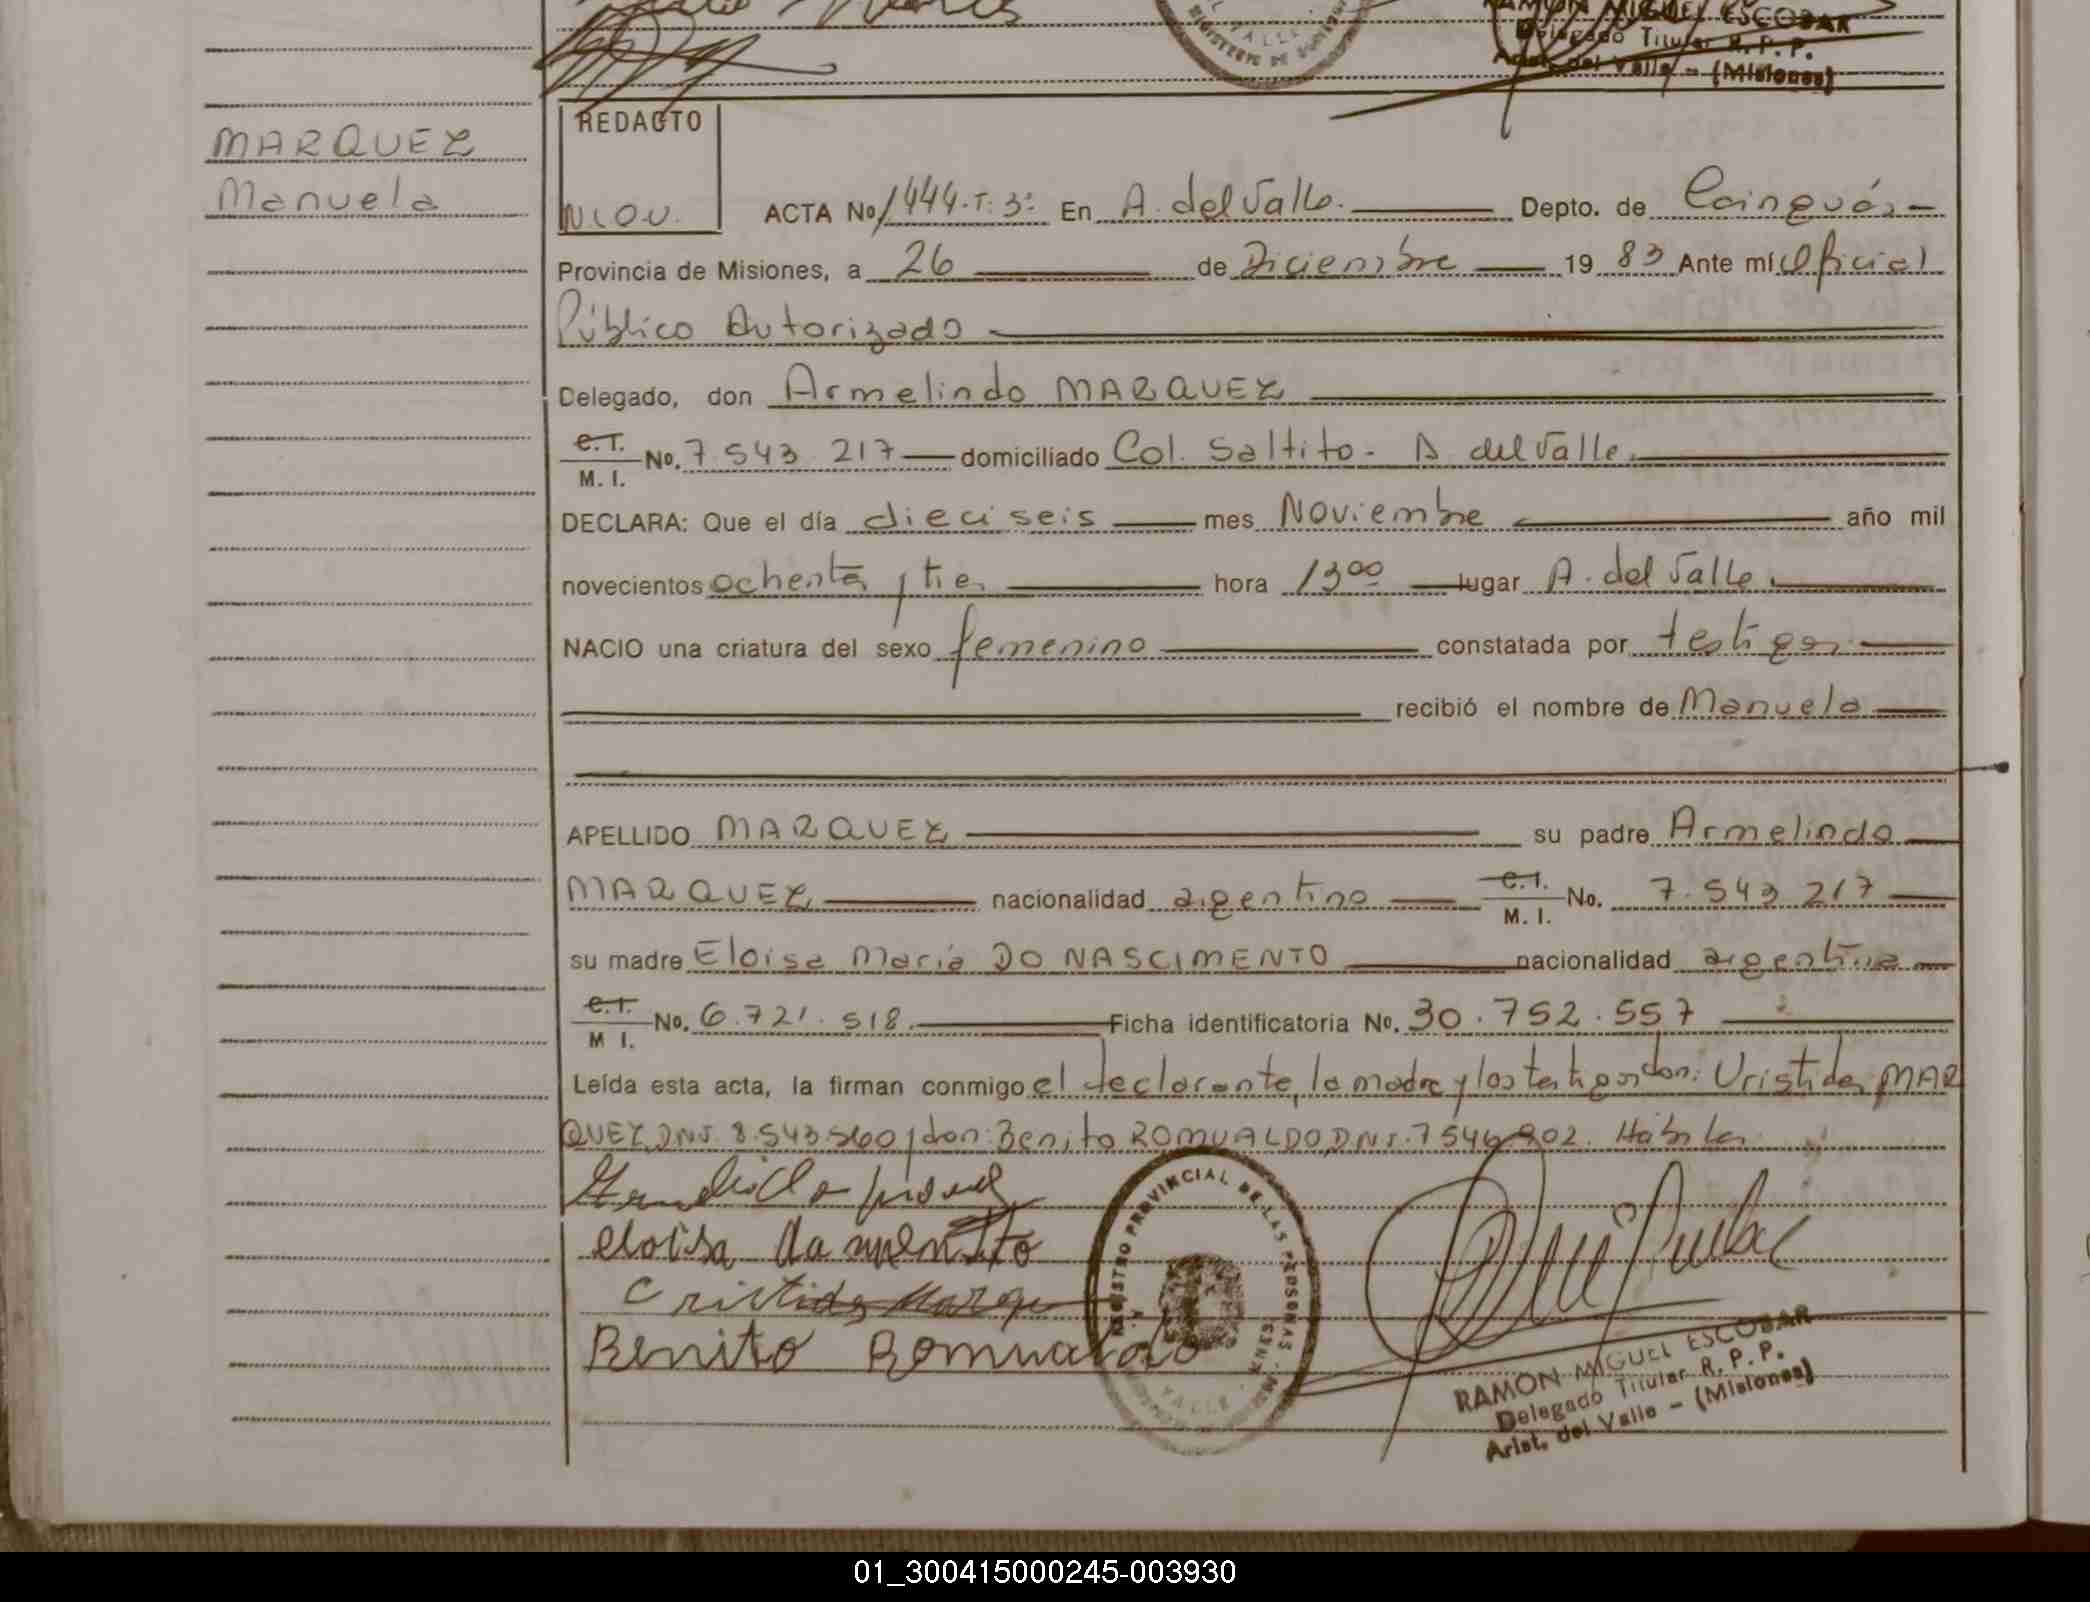 RAMON MIGUEL ESCOBAR
Delegado Titular R. P. P.
Arist. del Valle - (Misiones)
MARQUEZ
Manuela
REDACTO
ACTA No 1444. T. 3: En A. del Valle. Depto. de Cainguás
Provincia de Misiones, a 26 de Diciembre 19 83 Ante mí Oficial
Público Autorizado
Delegado, don Armelindo MARQUEZ
C.I.
M. I. No. 7 543 217 domiciliado Col. Saltito - A del Valle.
DECLARA: Que el día dieciseis mes Noviembre año mil
novecientos ochenta y tres hora 13 00 lugar A. del Valle.
NACIO una criatura del sexo femenino constatada por testigos
recibió el nombre de Manuela
APELLIDO MARQUEZ su padre Armelindo
MARQUEZ nacionalidad argentino C.I. M. I. No. 7.543 217
su madre Eloisa Maria DO NASCIMENTO nacionalidad argentina
C.I.
M I. No. 6.721.518. Ficha identificatoria No. 30.752.557
Leída esta acta, la firman conmigo el declarante, la madre y los testigos don: Uristides MAR
QUEZ, DNI. 8.543560 y don: Benito ROMUALDO, DNI. 7546902. Hábiles
eloisa
Benito Romualdo
REGISTRO PROVINCIAL DE LAS PERSONAS
VALLE
RAMON MIGUEL ESCOBAR
Delegado Titular R. P. P.
Arist. del Valle - (Misiones)
01_300415000245-003930